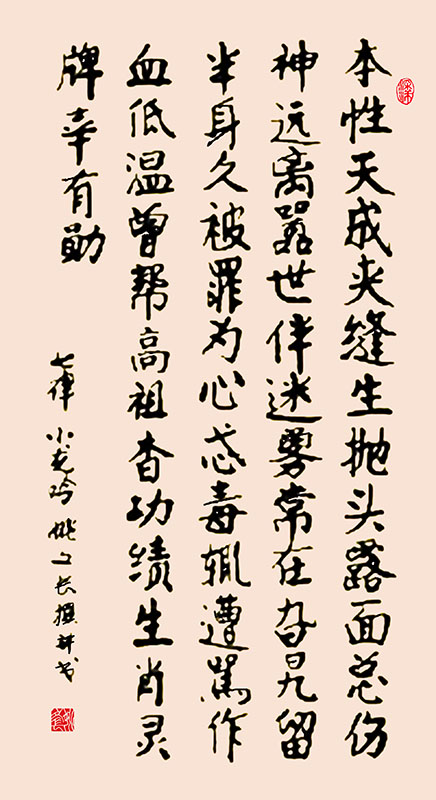 本性天成夹缝生抛头露面总伤
神远离嚣世伴迷雾常在旮旯留
半身久被罪为心忒毒辄遭骂作
血低温曾帮高祖查功绩生肖灵
牌幸有勋
七律 小龙吟 姚文长撰并书